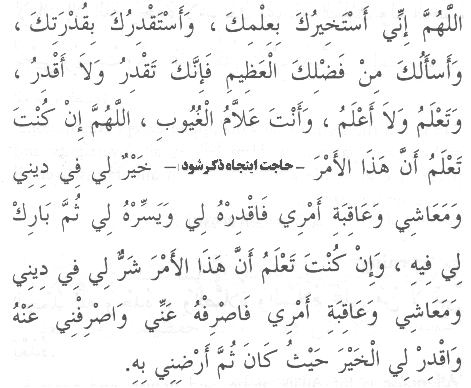 اللَّهُمَّ إِنِّي أَسْتَخِيرُكَ بِعِلْمِكَ ، وَأَسْتَقْدِرُكَ بِقُدْرَتِكَ ،
وَأَسْأَلُكَ مِنْ فَضْلِكَ الْعَظِيمِ فَإِنَّكَ تَقْدِرُ وَلَا أَقْدِرُ ،
وَتَعْلَمُ وَلَا أَعْلَمُ ، وَأَنْتَ عَلَّامُ الْغُيُوبِ ، اللَّهُمَّ إِنْ كُنْتَ
تَعْلَمُ أَنَّ هَذَا الْأَمْرَ - حاجت اینجاه ذکر شود - خَيْرٌ لِي فِي دِينِي
وَمَعَاشِي وَعَاقِبَةِ أَمْرِي فَاقْدِرْهُ لِي وَيَسِّرْهُ لِي ثُمَّ بَارِكْ
لِي فِيهِ ، وَإِنْ كُنْتَ تَعْلَمُ أَنَّ هَذَا الْأَمْرَ شَرٌّ لِي فِي دِينِي
وَمَعَاشِي وَعَاقِبَةِ أَمْرِي فَاصْرِفْهُ عَنِّي وَاصْرِفْنِي عَنْهُ
وَاقْدِرْ لِي الْخَيْرَ حَيْثُ كَانَ ثُمَّ أَرْضِنِي بِهِ.